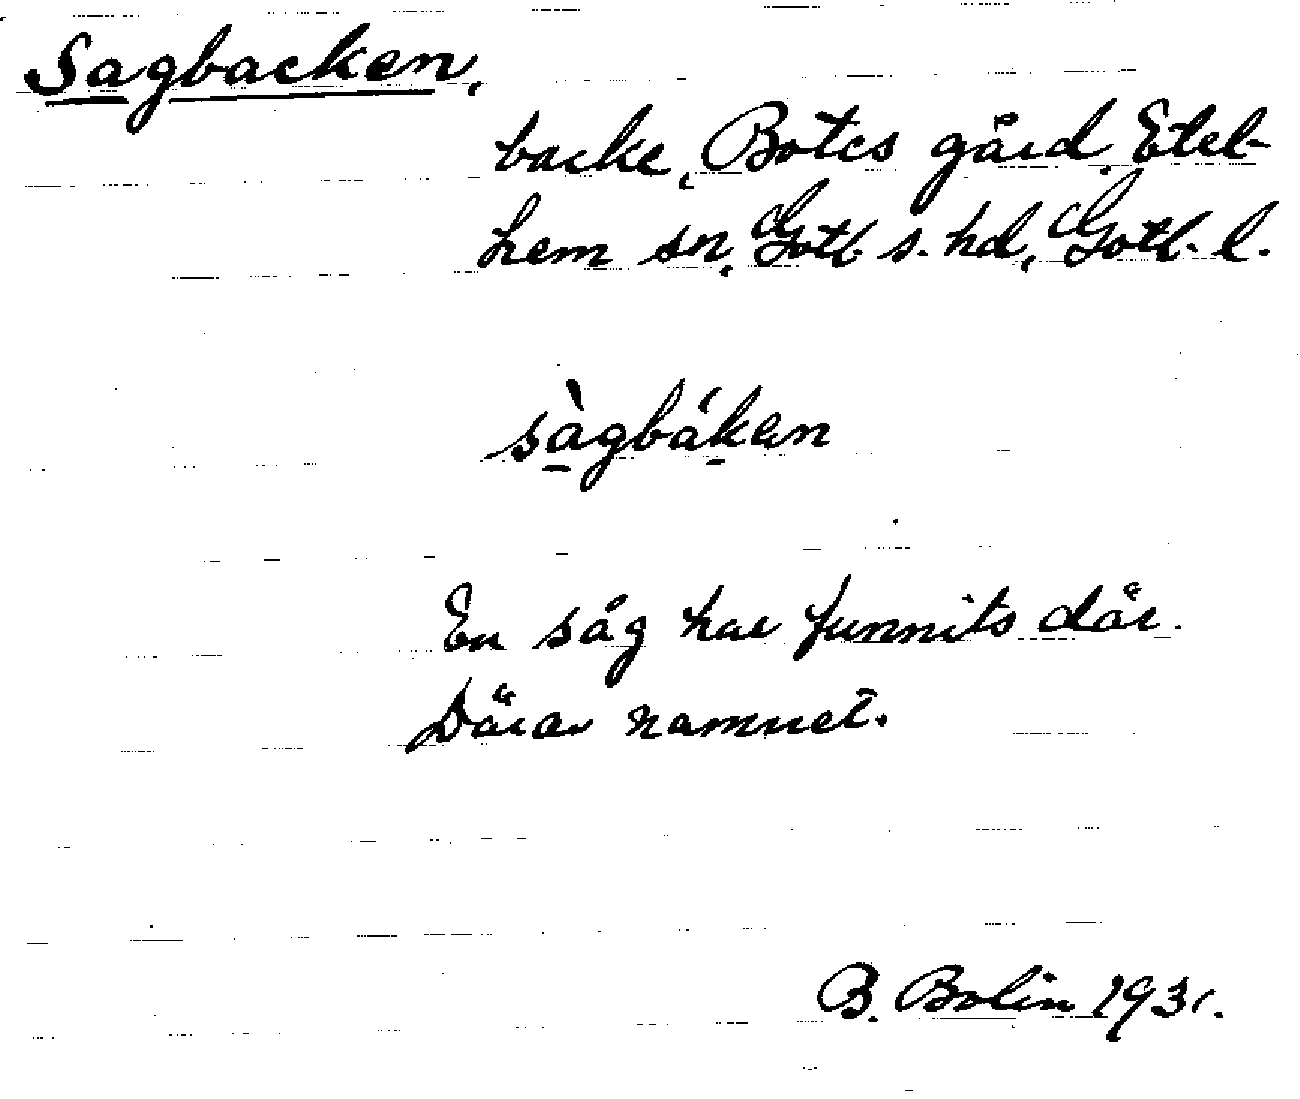 Sagbacken,
backe, Botes gård, Etel-
hem sn, Gotl. s. hd, Gotl. l.
sàgbákan
En såg har funnits där.
Därav namnet.
B. Bolin 1931.